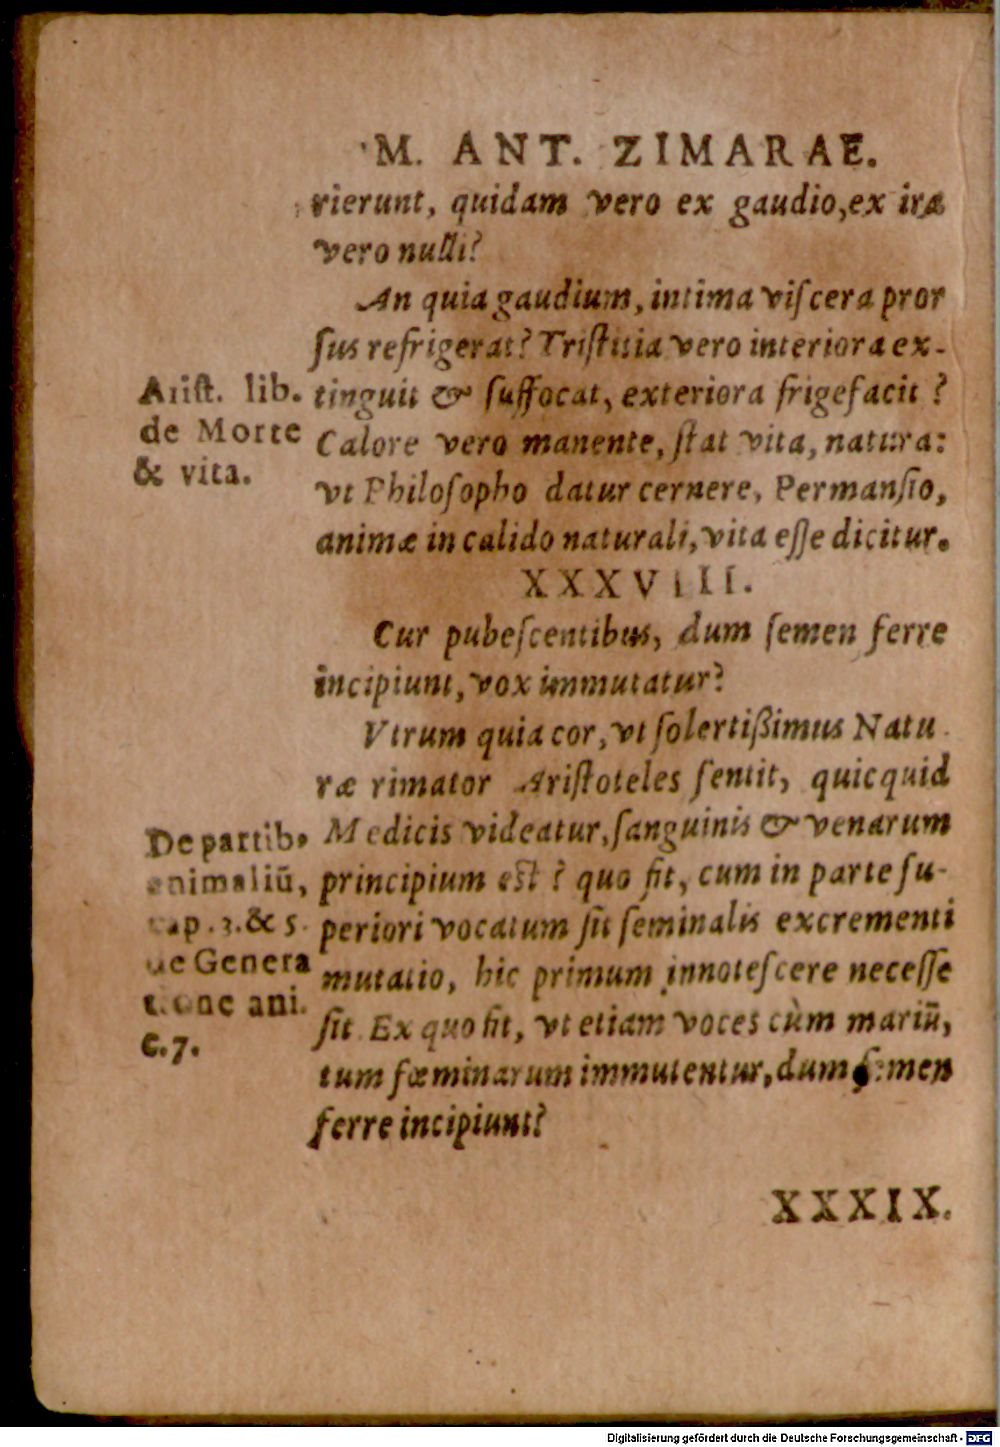 M. ANT. ZIMARAE.
rierunt, quidam vero ex gaudio, ex iræ
vero nulli?
An quia gaudium, intima viſcera pror
ſus refrigerat? Triſtitia vero interiora ex-
tinguit & ſuffocat, exteriora frigefacit?
Calore vero manente, ſtat vita, natura:
vt Philoſopho datur cernere, Permanſio,
animæ in calido naturali, vita eſſe dicitur.
Ariſt. lib.
de Morte
& vita.
XXXVIII.
Cur pubeſcentibus, dum ſemen ferre
incipiunt, vox immutatur?
Vtrum quia cor, vt ſolertißimus Natu
ræ rimator Ariſtoteles ſentit, quicquid
Medicis videatur, ſanguinis & venarum
principium eſt? quo fit, cum in parte ſu-
periori vocatum ſit ſeminalis excrementi
mutatio, hic primum innoteſcere neceſſe
ſit. Ex quo fit, vt etiam voces cùm mariũ,
tum fæminarum immutentur, dum ſemen
ferre incipiunt?
De partib,
animaliũ,
cap. 3. & 5.
de Genera
tione ani.
c. 7.
XXXIX.
Digitalisierung gefördert durch die Deutsche Forschungsgemeinschaft - DFG